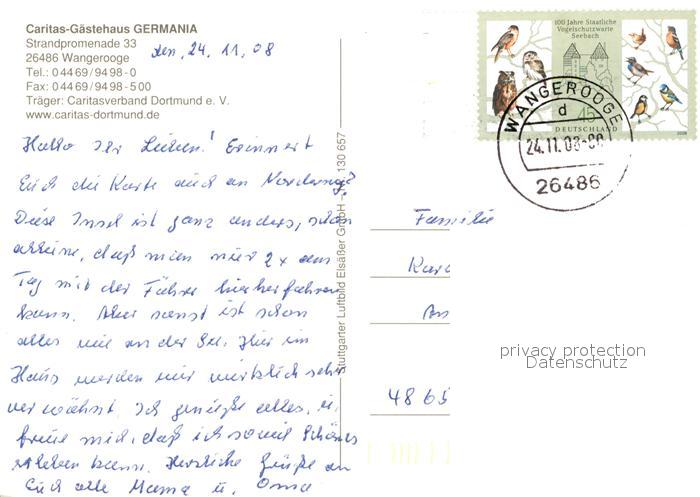 Caritas-Gästehaus GERMANIA
Strandpromenade 33
26486 Wangerooge
Tel.: 0 44 69 / 94 98 - 0
Fax: 0 44 69 / 94 98 - 5 00
Träger: Caritasverband Dortmund e. V.
www.caritas-dortmund.de
den, 24. 11. 08
Hallo Ihr Lieben! Erinnert
Euch die Karte auch an Norderney?
Diese Insel ist ganz anders, schon
alleine, daß man nur 2 x am
Tag mit der Fähre hierherfahren
kann. Aber sonst ist schon
alles wie an der See. Hier im
Haus werden wir wirklich sehr
verwöhnt. Ich genieße alles, u.
freue mich, daß ich soviel Schönes
erleben kann. Herzliche Grüße an
Euch alle Mama u. Oma
Stuttgarter Luftbild Elsäßer GmbH – Nr. 130 657
100 Jahre Staatliche
Vogelschutzwarte
Seebach
45
DEUTSCHLAND
2008
WANGEROOGE
d
24.11.08
26486
Familie
48 65
privacy protection
Datenschutz